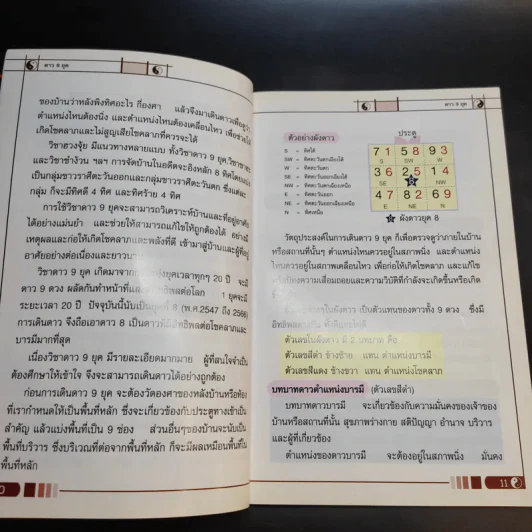 ดาว 9 ยุค
ของบ้านว่าหลังพิงทิศอะไร กี่องศา แล้วจึงมาเดินดาวเพื่อดูว่า
ตำแหน่งไหนต้องนิ่ง และตำแหน่งไหนต้องเคลื่อนไหว เพื่อช่วยให้
เกิดโชคลาภและไม่สูญเสียโชคลาภที่ควรจะได้
วิชาฮวงจุ้ย มีแนวทางหลายแบบ ทั้งวิชาดาว 9 ยุค วิชาซาฮะ
และวิชาชำงวน ฯลฯ การจัดบ้านในอดีตจะอิงหลัก 8 ทิศโดยแบ่ง
เป็นกลุ่มดาวราศีตะวันออกและกลุ่มดาวราศีตะวันตก ซึ่งแต่ละ
กลุ่ม ก็จะมีทิศดี 4 ทิศ และทิศร้าย 4 ทิศ
การใช้วิชาดาว 9 ยุคจะสามารถวิเคราะห์บ้านและที่อยู่อาศัย
ได้อย่างแม่นยำ และช่วยให้สามารถแก้ไขให้ถูกต้องได้ อย่างมี
เหตุผลและก่อให้เกิดโชคลาภและพลังที่ดี เข้ามาสู่บ้านและผู้ที่อยู่
อาศัยอย่างต่อเนื่องและยาวนาน
วิชาดาว 9 ยุค เกิดมาจากการแบ่งยุคเวลาทุกๆ 20 ปี จะมี
ดาว 9 ดวง ผลัดกันทำหน้าที่ อิทธิพลต่อโลก 1 ยุคจะมี
ระยะเวลา 20 ปี ปัจจุบันนี้นับเป็นยุคที่ 8 (พ.ศ.2547 ถึง 2566)
การเดินดาว จึงถือเอาดาว 8 เป็นดาวที่มีอิทธิพลต่อโชคลาภและ
บารมีมากที่สุด
เนื่องวิชาดาว 9 ยุค มีรายละเอียดมากมาย ผู้ที่สนใจจำเป็น
ต้องศึกษาให้เข้าใจ จึงจะสามารถเดินดาวได้อย่างถูกต้อง
ก่อนการเดินดาว 9 ยุค จะต้องวัดองศาของหลังบ้านหรือห้อง
ที่เรากำหนดให้เป็นพื้นที่หลัก ซึ่งจะเกี่ยวข้องกับประตูทางเข้าเป็น
สำคัญ แล้วแบ่งพื้นที่เป็น 9 ช่อง ส่วนอื่นๆของบ้านจะนับเป็น
พื้นที่บริวาร ซึ่งบริเวณที่ต่อจากพื้นที่หลัก ก็จะมีผลเหมือนพื้นที่ใน
พื้นที่หลัก
ดาว 9 ยุค
ตัวอย่างผังดาว
S = ทิศใต้
SW = ทิศตะวันตกเฉียงใต้
W = ทิศตะวันตก
SE = ทิศตะวันออกเฉียงใต้
NW = ทิศตะวันตกเฉียงเหนือ
E = ทิศตะวันออก
NE = ทิศตะวันออกเฉียงเหนือ
N = ทิศเหนือ
ประตู
7 1 5 8 9 3
S SW W
3 6 2 5 1 4
SE NW
4 7 8 2 6 9
E NE N
ผังดาวยุค 8
วัตถุประสงค์ในการเดินดาว 9 ยุค ก็เพื่อตรวจดูว่าภายในบ้าน
หรือสถานที่นั้นๆ ตำแหน่งไหนควรอยู่ในสภาพนิ่ง และตำแหน่ง
ไหนควรอยู่ในสภาพเคลื่อนไหว เพื่อก่อให้เกิดโชคลาภ และแก้ไข
หรือป้องความเสื่อมถอยและความวิบัติที่กำลังจะเกิดขึ้นหรือเกิด
ในผังดาว เป็นตัวแทนของดาวทั้ง 9 ดวง ซึ่งมี
ตัวเลขในผังดาว มี 2 บทบาท คือ
ตัวเลขสีดำ ข้างซ้าย แทน ตำแหน่งบารมี
ตัวเลขสีแดง ข้างขวา แทน ตำแหน่งโชคลาภ
บทบาทดาวตำแหน่งบารมี (ตัวเลขสีดำ)
บทบาทดาวบารมี จะเกี่ยวข้องกับความมั่นคงของเจ้าของ
บ้านหรือสถานที่นั้น สุขภาพร่างกาย สติปัญญา อำนาจ บริวาร
และผู้ที่เกี่ยวข้อง
ตำแหน่งของดาวบารมี จะต้องอยู่ในสภาพนิ่ง มั่นคง
11